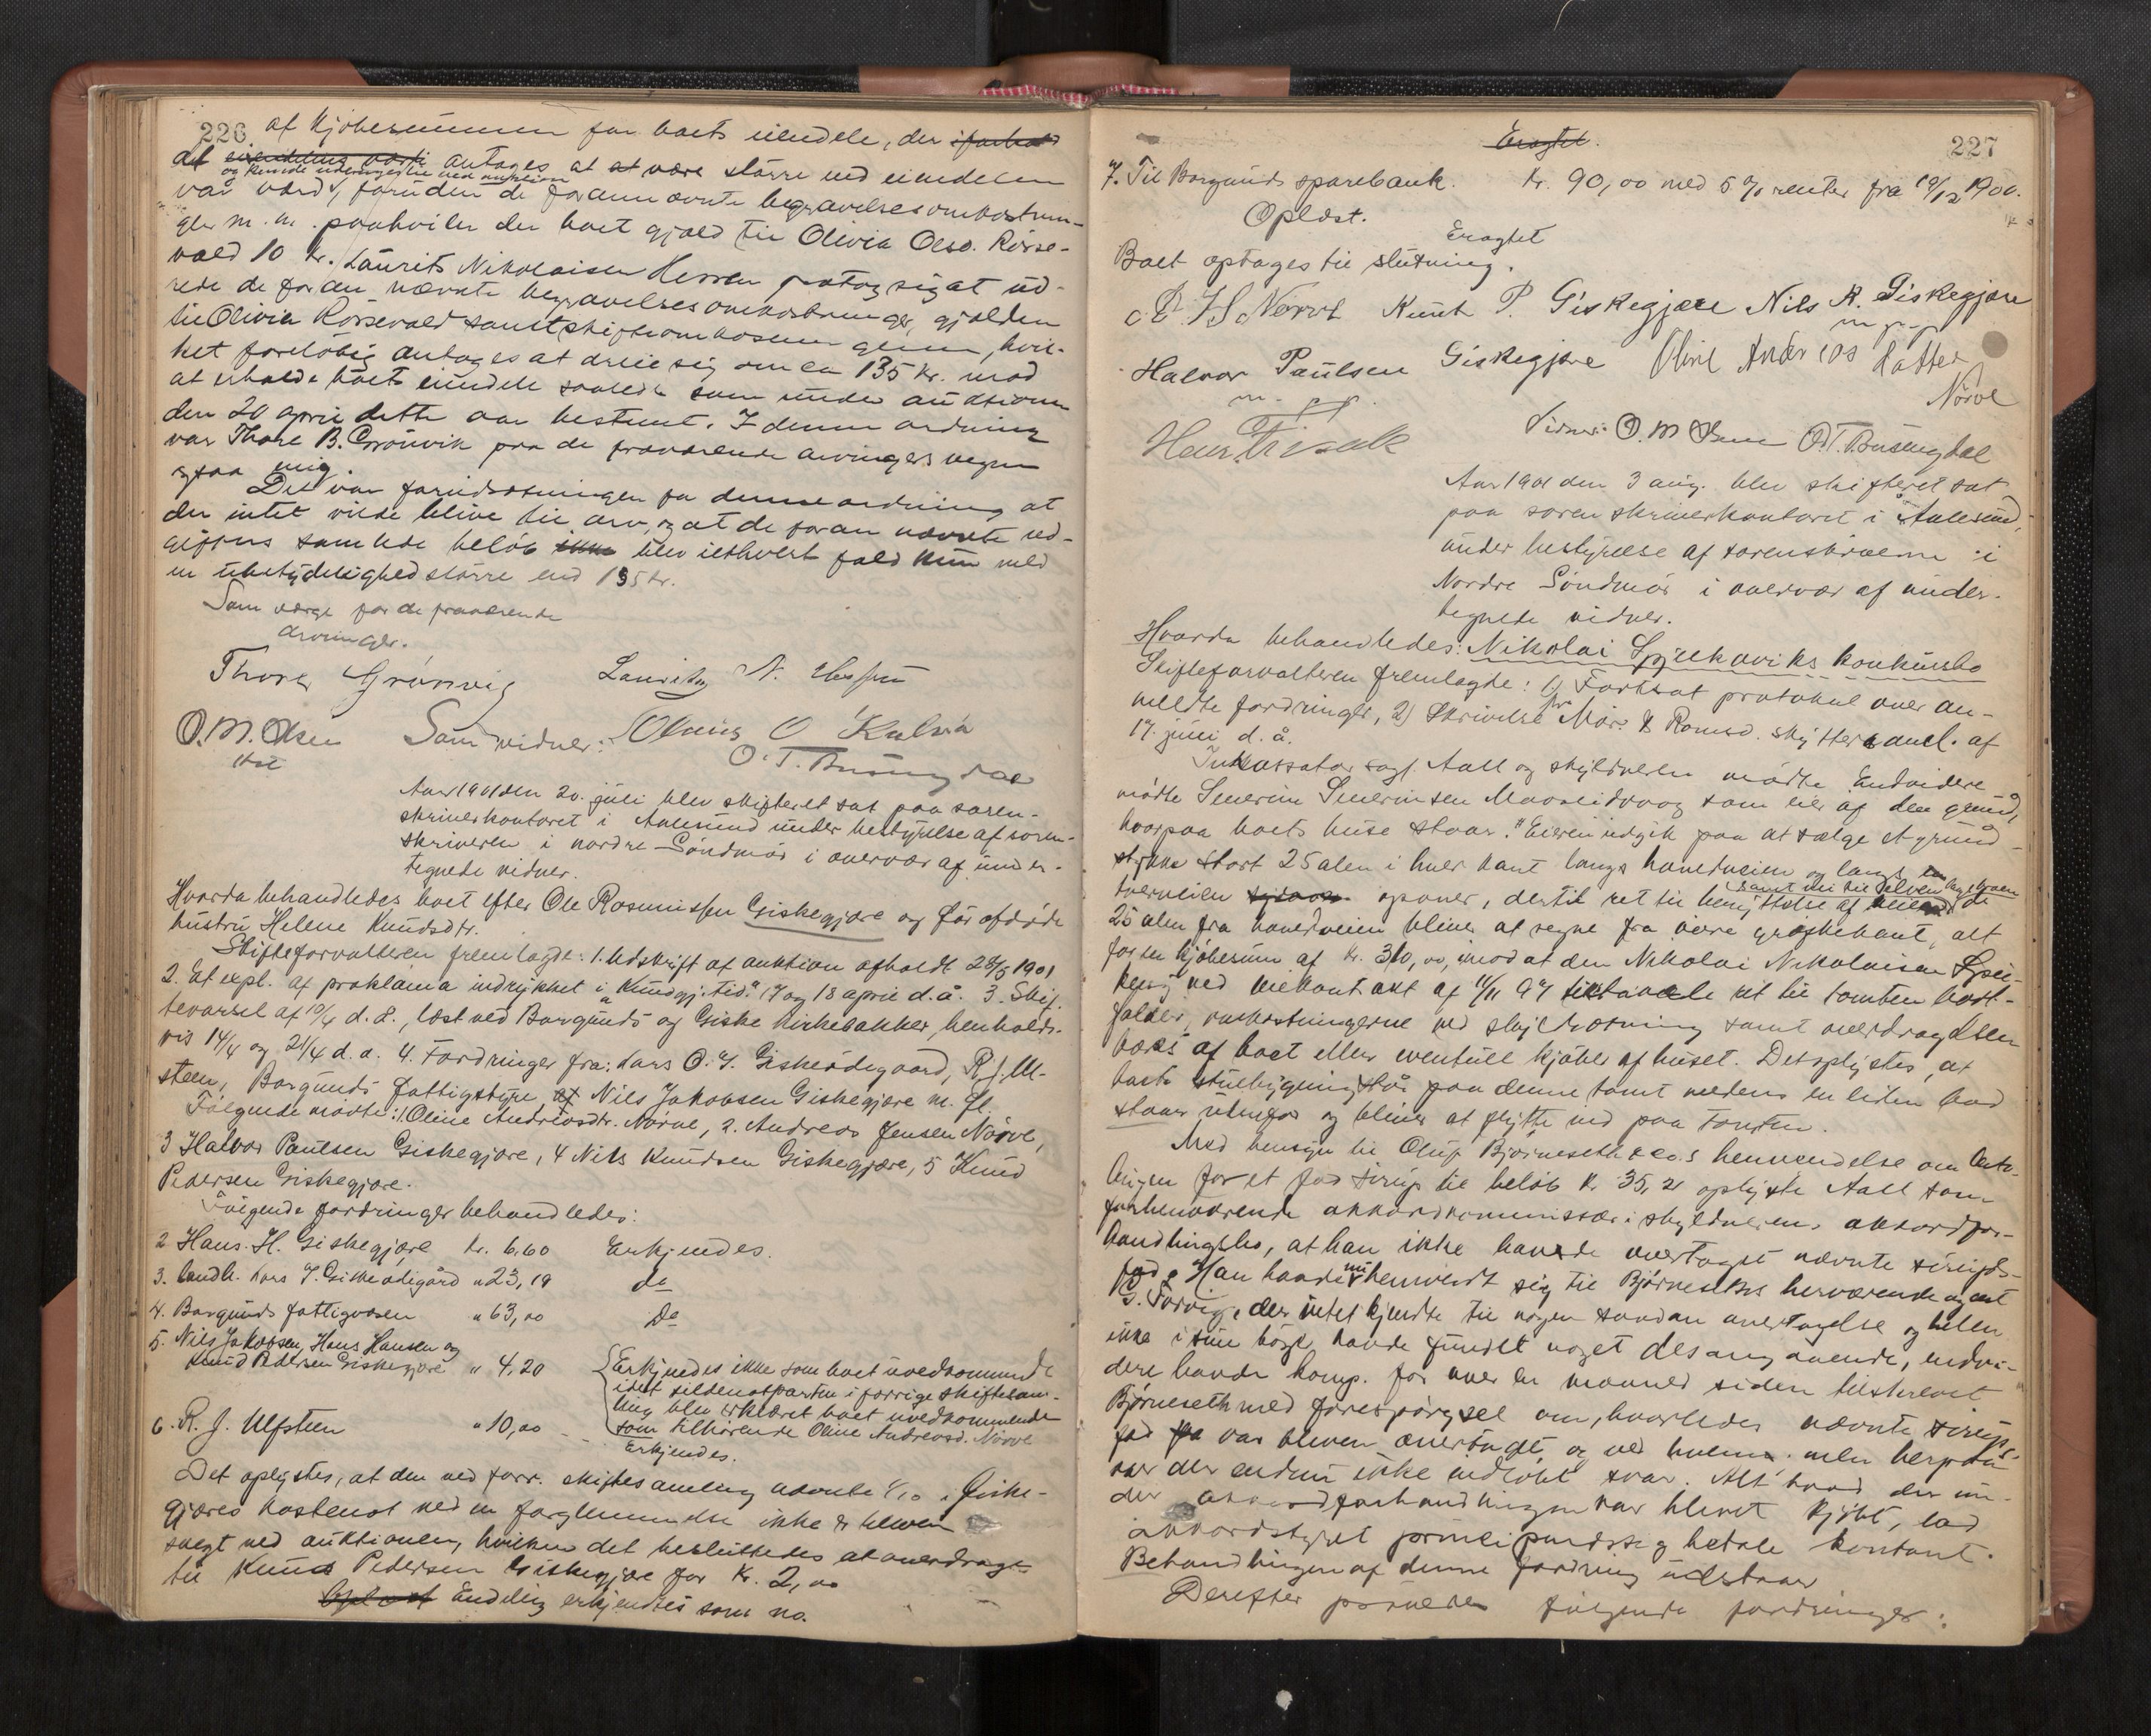 226
af kjøbesummen for boets eiendele, der iforhold
det eiendelens værdi antages at at være større end eiendelen
og kunde udbringes til ved auktion
var værd, foruden de forannævnte begravelsesomkostnin-
ger m. m. paahviler der boet gjæld til Olivia Olsd. Rørse-
vold 10 kr. Laurits Nikolaisen Hessen paatog sig at ud-
rede de foran nævnte begravelsesomkostninger, gjælden
til Olivia Rørsevold samt skifteomkostningerne, hvil-
ket foreløbig antages at dreie sig om ca 135 kr. mod
at erholde boets eiendele saaledes som under auktionen
den 20 april dette aar bestemt. I denne ordning
var Thore B. Grønvik paa de fraværende arvingers vegne
ogsaa enig.
Det var forudsætningen for denne ordning at
der intet vilde blive til arv, og at de foran nævnte ud-
gifters samlede beløb ikke blev i ethvert fald kun med
en ubetydelighed større end 135 kr.
Som værge for de fraværende
arvinger.
Thore Grønvig Laurits N. Hessen
O. M. Olsen Som vidner: Olaus O Kalvø
O. T. Busengdal
Aar 1901 den 20. juli blev skifteret sat paa soren-
skriverkontoret i Aalesund under bestyrelse af soren-
skriveren i nordre Søndmør i overvær af under-
tegnede vidner.
Hvorda behandledes boet efter Ole Rasmussen Giskegjære og før afdøde
hustru Helene Knudsdtr.
Skifteforvalteren fremlagde: 1. Udskrift af auktion afholdt 28/5 1901
2. Et expl. af proklama indrykket i "Kundgj. tid." 17 og 18 april d.å. 3. Skif-
tevarsel af 10/4 d. å., læst ved Borgunds og Giske kirkebakker, henholds-
vis 14/4 og 21/4 d. a. 4. Fordringer fra: Lars O. J. Giskeødegaard, R. J. Ul-
steen, Borgunds fattigstyre, af Nils Jakobsen Giskegjære m. fl.
Følgende mødte: 1. Oline Andreasdtr. Nørve, 2. Andreas Jensen Nørve,
3 Halvor Paulsen Giskegjære, 4 Nils Knudsen Giskegjære, 5 Knud
Pedersen Giskegjære.
Følgende fordringer behandledes:
2 Hans. H. Giskegjære Kr. 6,60 Erkjendes.
3. Landh. Lars J. Giskeødegård " 23,19 do
4. Borgunds fattigvæsen " 63,00 do
5. Nils Jakobsen, Hans Hansen og
Knud Pedersen Giskegjære " 4,20 Erkjendes ikke som boet uvedkommende
idet sildenotparten i forrige skiftesam-
ling blev erklæret boet uvedkommende
som tilhørende Oline Andreasd. Nørve
6. R. J. Ulfsteen " 10,00 Erkjendes.
Det oplystes, at den ved forr. skiftesamling nævnte 1/10 i Giske-
gjæres kastenot ved en forglemmelse ikke er bleven
solgt ved auktionen, hvilken det besluttedes at overdrage
til Knud Pedersen Giskegjære for Kr. 2,00
Oplæst Endelig erkjendtes som no.
227
Eragtet.
7. Til Borgunds sparebank. Kr. 90,00 med 5 % renter fra 19/12 1900.
Oplæst.
Eragtet
Boet optages til slutning.
P. H S Nørve Knut P. Giskegjære Nils K. Giskegjære
m. p. p
Halvor Paulsen Giskegjære Oline Andreas Datter
m. p. p. Nørve
Vidner: O. M Olsen O. T. Busengdal
Aar 1901 den 3 aug. blev skifteret sat
paa sorenskriverkontoret i Aalesund,
under bestyrelse af sorenskriveren i
Nordre Søndmør i overvær af under-
tegnede vidner.
Hvorda behandledes: Nikolai Spjelkaviks konkursbo
Skifteforvalteren fremlagde: 1) Fortsat protokol over an-
meldte fordringer, 2) Skrivelse fra Mør. & Romsd. skytteraml. af
17. juli d. å.
Inkassator sagf. Aall og skyldneren mødte. Endvidere
mødte Severin Severinsen Moseidvaag som eier af den grund,
hvorpaa boets huse staar. "Eieren indgik paa at sælge et grund-
stykke stort 25 alen i hver kant langs hovedveien og langs
tverveien opover, dertil ret til benyttelse af
samt vei til elven
25 alen fra hovedveien bliver at regne fra øvre grøftekant, alt
for en kjøbesum af Kr. 310,00, imod at den Nikolai Nikolaisen Spjel-
kevig ved leiekontrakt af 11/11 97 ret til tomten bort-
falder, omkostningerne ved skyldsætning samt overdragelsen
bæres af boet eller eventuell kjøber af huset. Det oplystes, at
boets stuebygning står paa denne tomt medens en liden bod
staar udenfor og bliver at flytte ind paa tomten.
Med hensyn til Oluf Bjørneseth & co.s henvendelse om beta-
lingen for et fad sirup til beløb kr. 35,21 oplyste Aall som
forhenværende akkordkommissær i skyldnerens akkordfor-
handlingsbo, at han ikke havde overtaget nævnte sirups-
fad. Han havde nu henvendt sig til Bjørneseths herværende agent
G. Torvig, der intet kjendte til nogen saadan overtagelse og heller
ikke i sine bøger havde fundet noget desangaaende, endvi-
dere havde komp. for over en maaned siden tilskrevet
Bjørneseth med forespørgsel om, hvorledes nævnte sirups-
fad var bleven overtaget, og ved hvem. men herpaa
var der endnu ikke indløbet svar. Alt hvad der un-
der akkordforhandlingen var blevet kjøbt, lod
akkordstyret principmæssig betale kontant.
Behandlingen af denne fordring udstaar
Derefter prøvedes følgende fordringer: